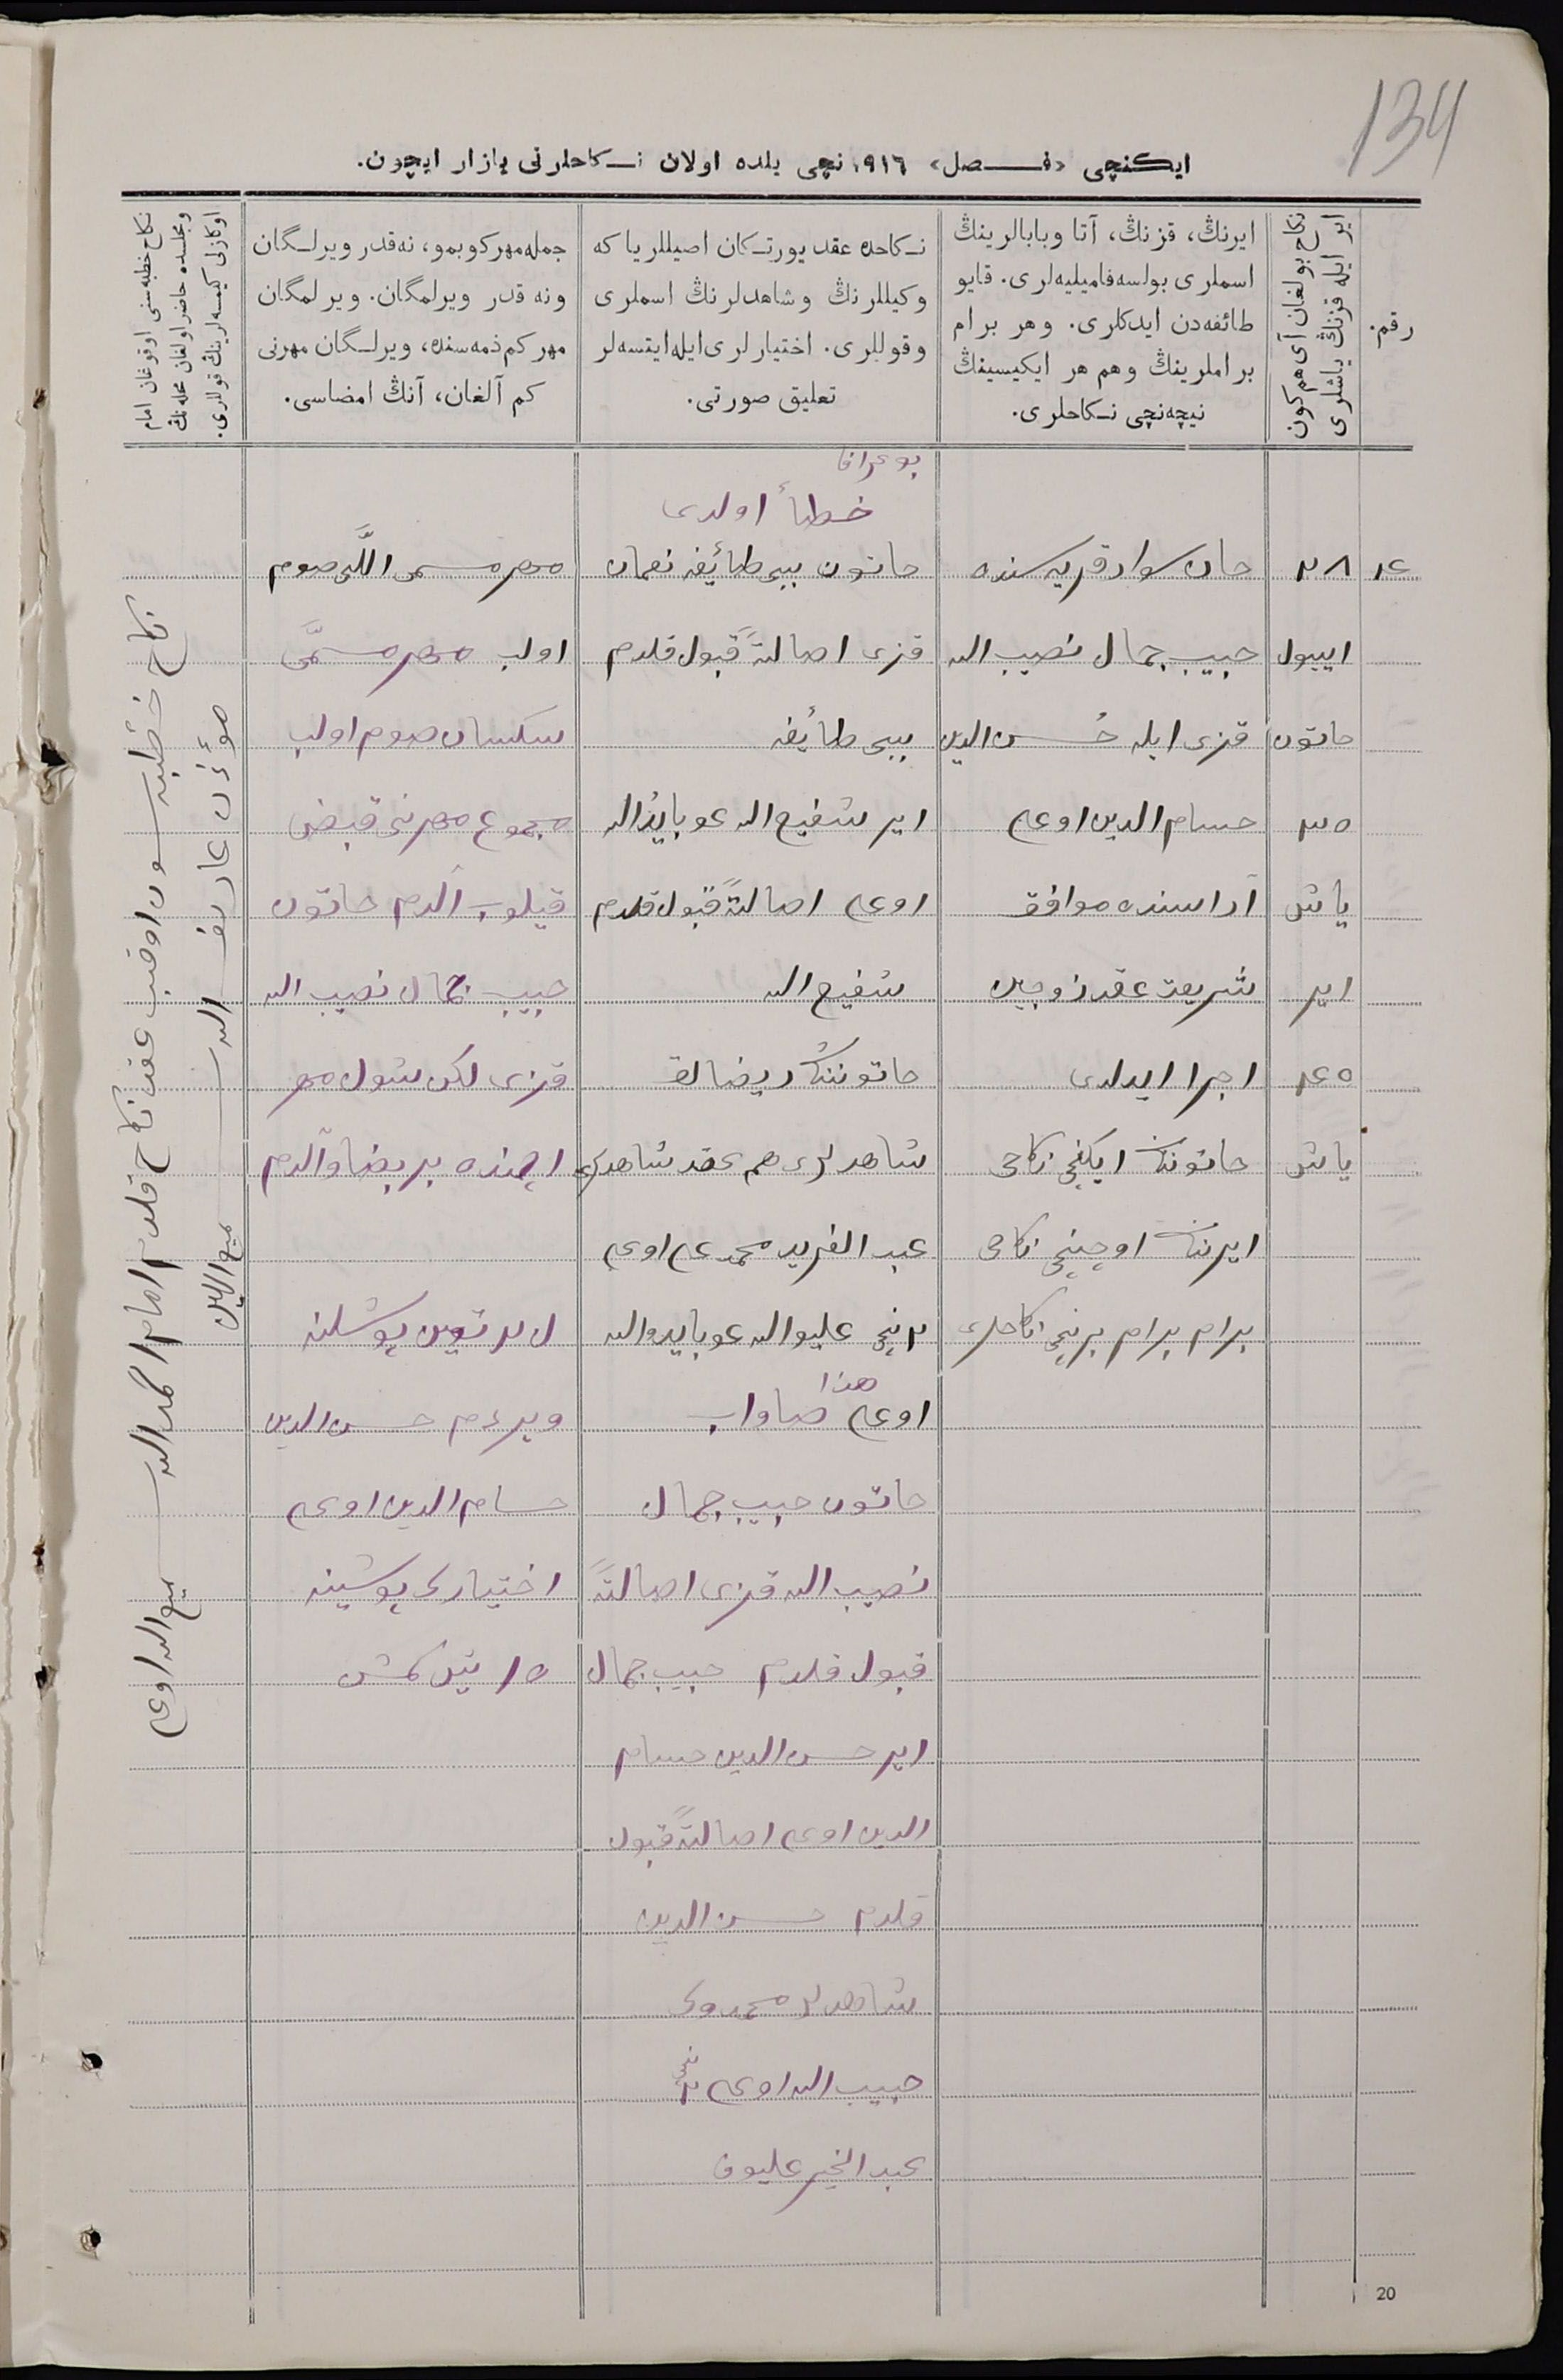 134
ایكنچی «فصل» ۱۹۱٦ نچی یلده اولان نكاحلرنی یازار ایچون.
رقم.
نكاح بولغان آی هم كون
ایر ایله قزنڭ یاشلری
ایرنڭ، قزنڭ، آتا وبابالرینڭ
اسملری بولسه فامیلیه‌لری. قایو
طائفه‌دن ایدكلری. وهر برام
براملرینڭ وهم هر ایكیسینڭ
نیچه‌نچی نكاحلری.
نكاحده عقد یورتكان اصیللر یا كه
وكیللرنڭ وشاهدلرنڭ اسملری
وقوللری. اختیارلری ایله ایتسه‌لر
تعلیق صورتی.
جمله مهر كوبمو، نه‌قدر ویرلگان
ونه قدر ویرلمگان. ویرلمگان
مهر كم ذمه‌سنده، ویرلگان مهرنی
كم آلغان، آنڭ امضاسی.
نكاح خطبه‌سنی اوقوغان امام
ومجلسده حاضر اولغان محله‌نڭ
اوكازنی كیمسه‌لرینڭ قوللری.
۱٤
۲۸
اییول
خاتون
۳۵
یاش
ایر
٤۵
یاش
سواد قریه سنده
حبیب جمال نصیب الله
قزی ایله حسن الدین
حسام الدین اوغلی
آراسنده موافق
شریعت عقد زوجین
اجرا ایدلدی
خاتوننڭ ایكنچی نكاحی
ایرننڭ اوچنچی نكاحی
برام برام برنچی نكاحلری
خطاً اولدی
خاتون بیبی طائفه نعمان
قزی اصالةً قبول قلدم
بیبی طائفه
ایر شفیع الله
اوغلی اصالةً قبول قلدم
شفیع الله
خاتوننڭ ریضالق
شاهدلری هم عقد شاهدلری
عبد الفرید محمد علی اوغلی
۲ نچی
هذا
اوغلی صاواب
خاتون حبیب جمال
نصیب الله قزی اصالةً
قبول قلدم حبیب جمال
ایر حسن الدین حسام
الدین اوغلی اصالةً قبول
قلدم حسن الدین
شاهدلر محمد ولی
حبیب الله اوغلی ۲ نچی
عبد الخیر علیوف
مهر مسمی اللی صوم
اولب مهر مسمّی
سكسان صوم اولب
مجموع مهرنی قبض
قیلوب آلدم خاتون
حبیب جمال نصیب الله
قزی لكن شول مهر
اچنده بر آلدم
ویردم حسن الدین
حسام الدین اوغلی
اختیارلی
۱۵ تین كمش
نكاح خطبه سون اوقب عقد نكاح قلدم امام سمیع الله اوغلی
مؤذن عارف الله
20